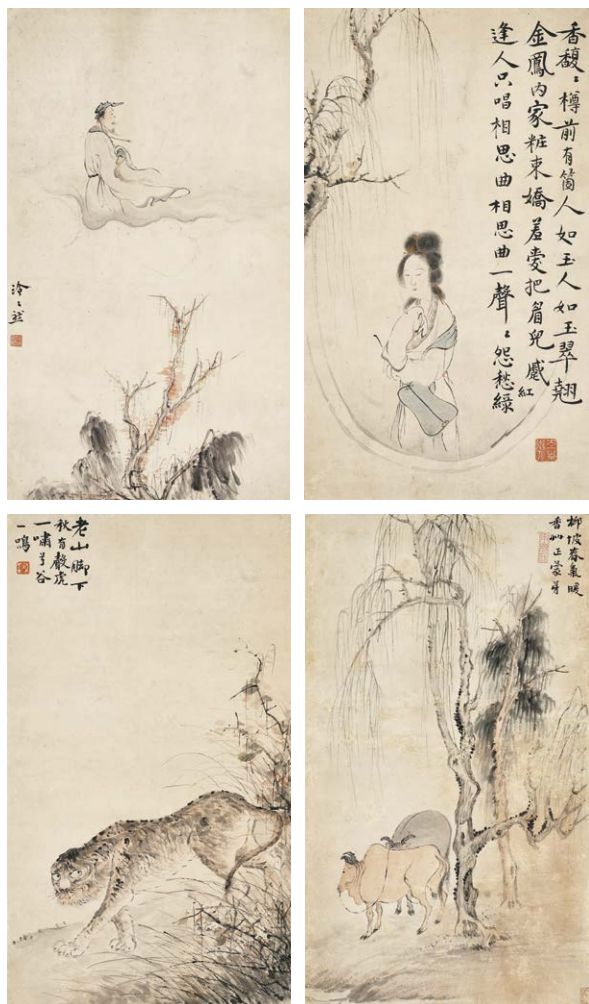 泠〻然
香馥〻樽前有箇人如玉人如玉翠翹
金鳳內家粧束嬌羞愛把眉兒蹙
逢人只唱相思曲相思曲一聲〻怨紅愁綠
老山腳下
秋有聲虎
一嘯兮谷
一鳴
柳坡春氣暖
香艸正蒙茸